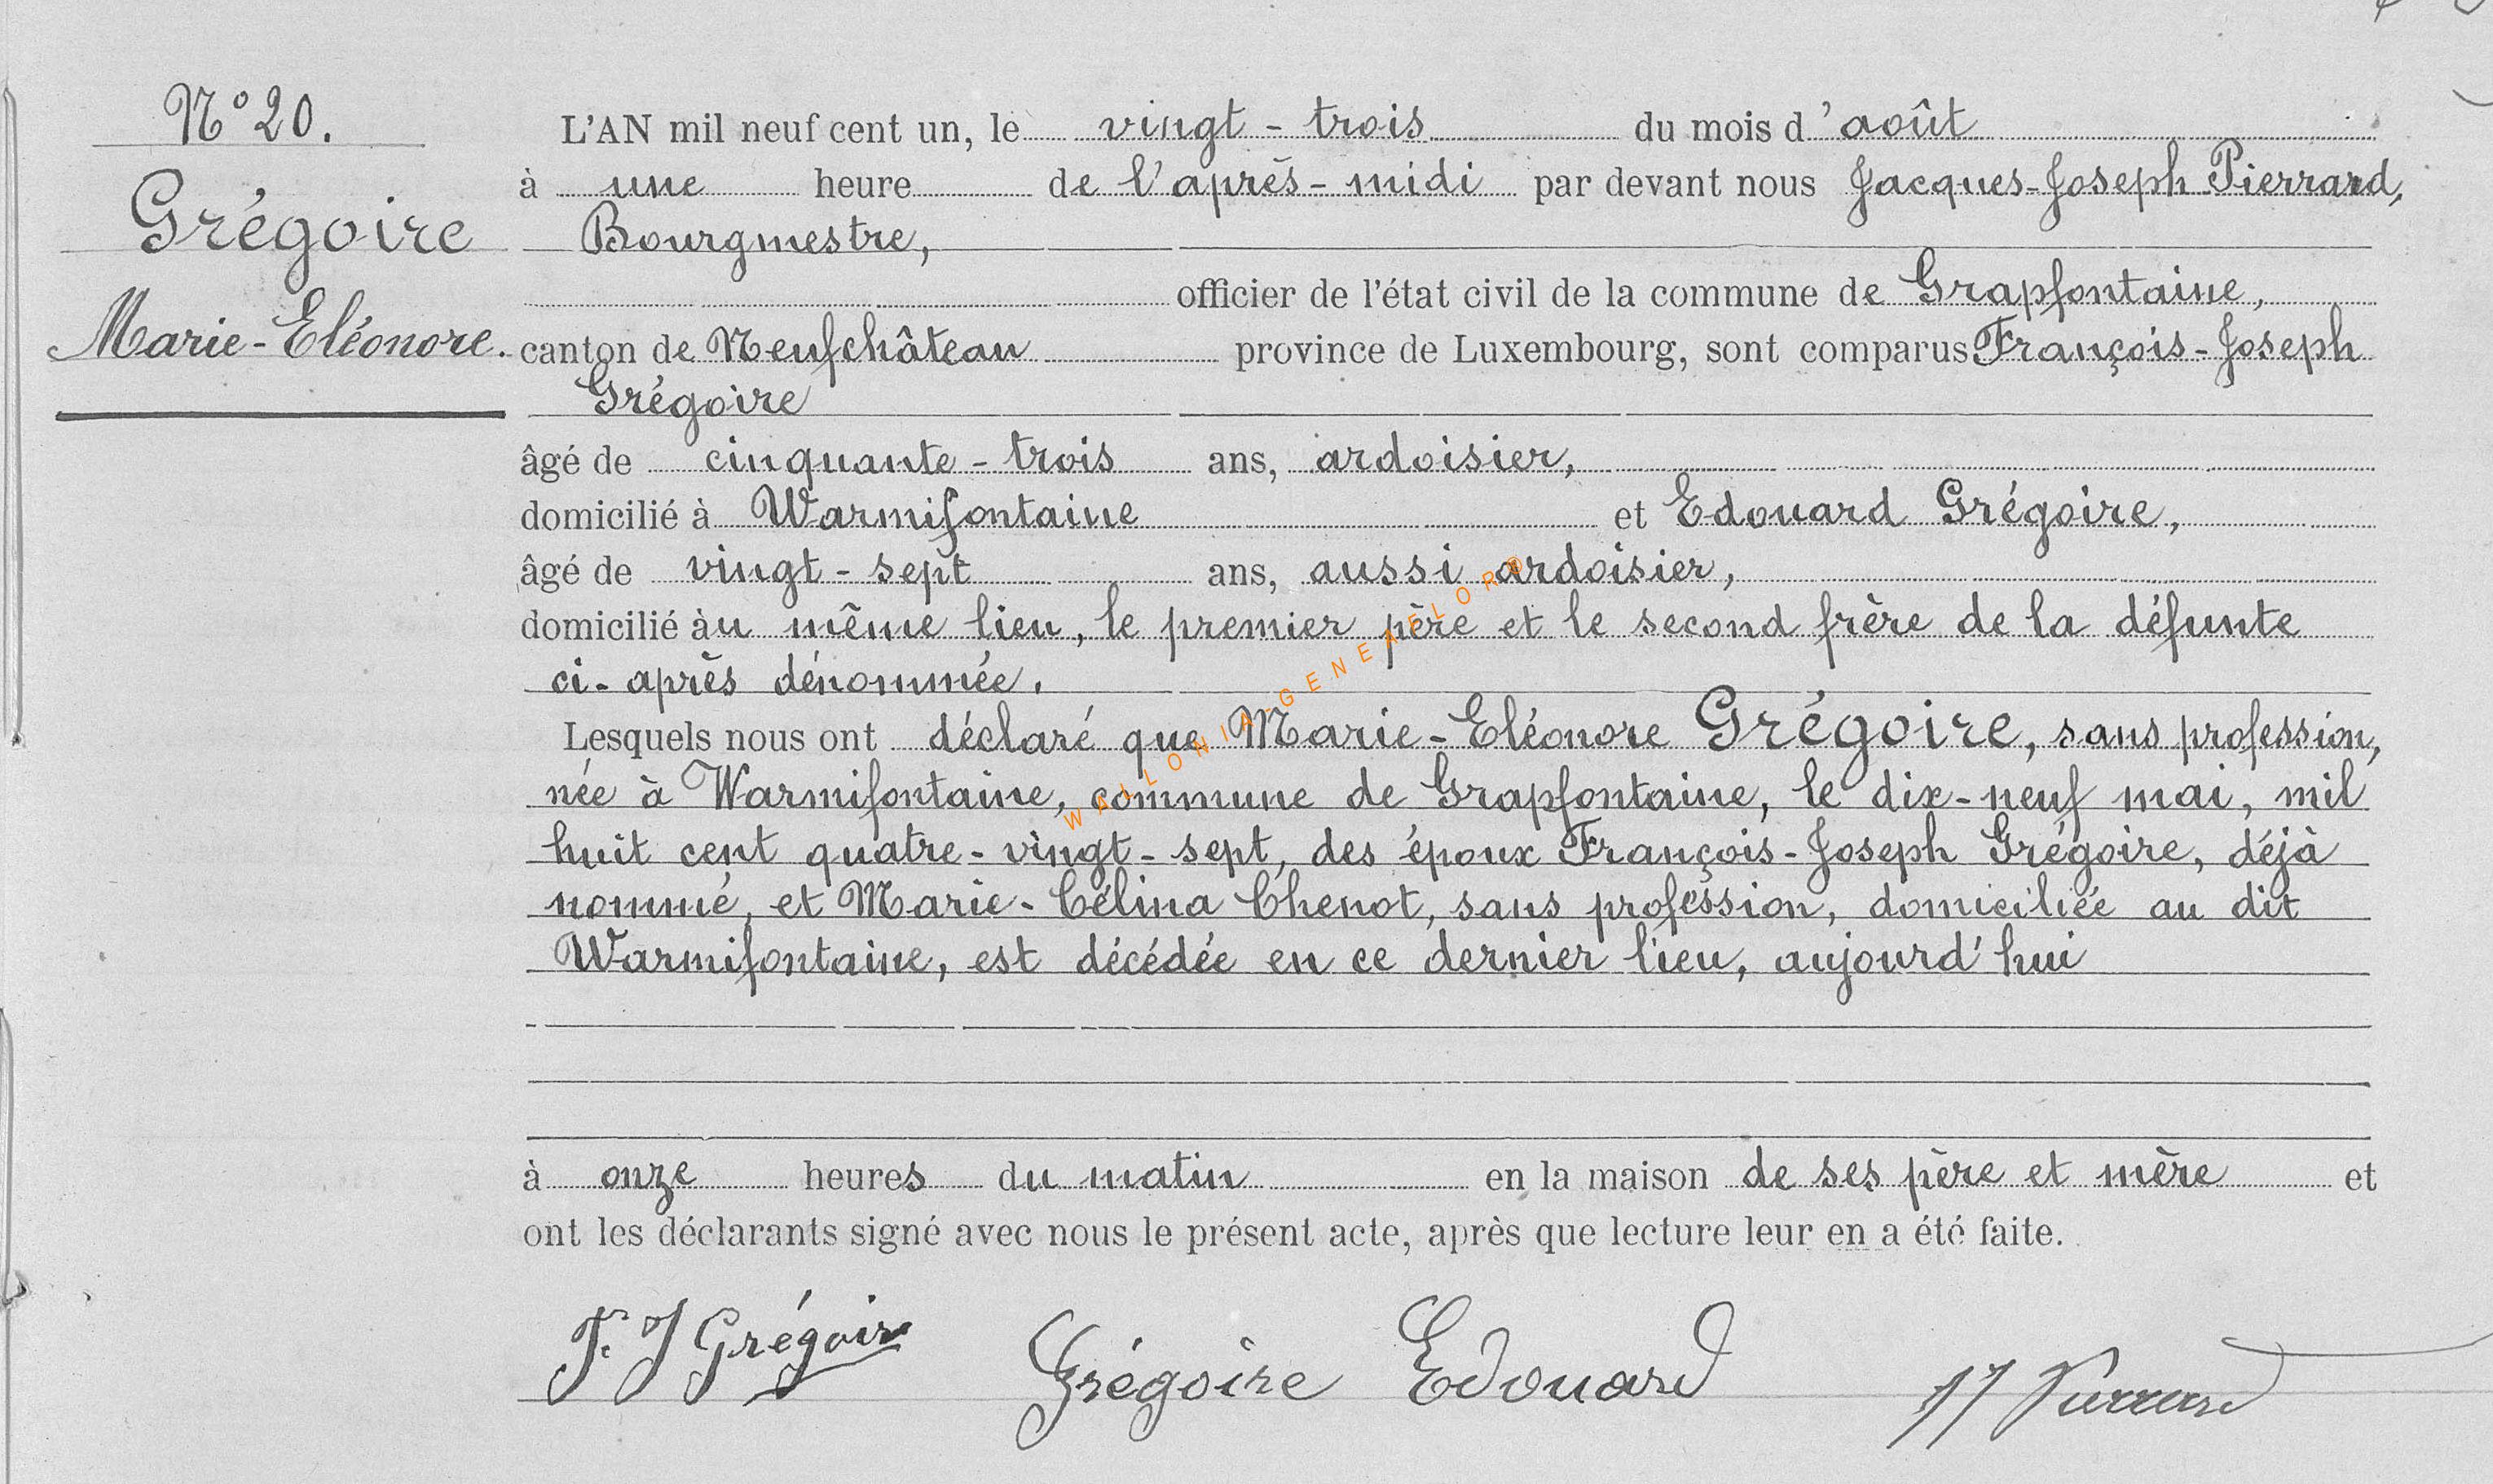 N° 20.
Grégoire
Marie-Eléonore.
L'AN mil neuf cent un, le vingt-trois du mois d'août
à une heure de l'après-midi par devant nous Jacques-Joseph Pierrard,
Bourgmestre,
officier de l'état civil de la commune de Grapfontaine,
canton de Neufchâteau province de Luxembourg, sont comparus François-Joseph
Grégoire
âgé de cinquante-trois ans, ardoisier,
domicilié à Warmifontaine et Edouard Grégoire,
âgé de vingt-sept ans, aussi ardoisier,
domicilié àu même lieu, le premier père et le second frère de la défunte
ci-après dénommée.
Lesquels nous ont déclaré que Marie-Eléonore Grégoire, sans profession,
née à Warmifontaine, commune de Grapfontaine, le dix-neuf mai, mil
huit cent quatre-vingt-sept, des époux François-Joseph Grégoire, déjà
nommé, et Marie-Célina Chenot, sans profession, domiciliée au dit
Warmifontaine, est décédée en ce dernier lieu, aujourd'hui
à onze heures du matin en la maison de ses père et mère et
ont les déclarants signé avec nous le présent acte, après que lecture leur en a été faite.
F. J Grégoire Grégoire Edouard JJ Pierrard